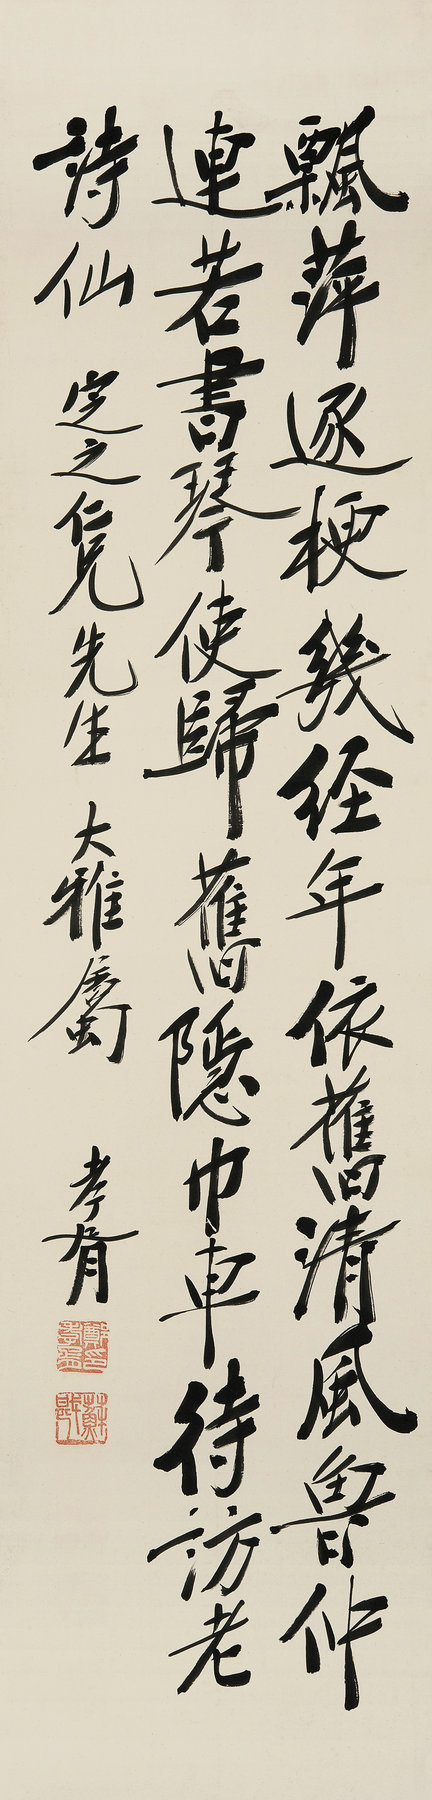 飄萍逐梗幾經年依舊清風魯仲
連若書琴使歸舊隱巾車待訪老
詩仙 定之仁兄先生 大雅屬 孝胥
鄭孝胥印
蘇戡